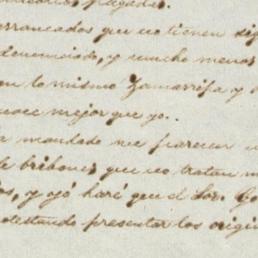 pagados.
arrancados que no tienen sig
denunciado, y mucho menos
en lo mismo Zamarripa y
noce mejor que yo..
mandado me parecen
de bribones que no tratan
os, y yó haré que el Sor. Go
otestando presentar los origin